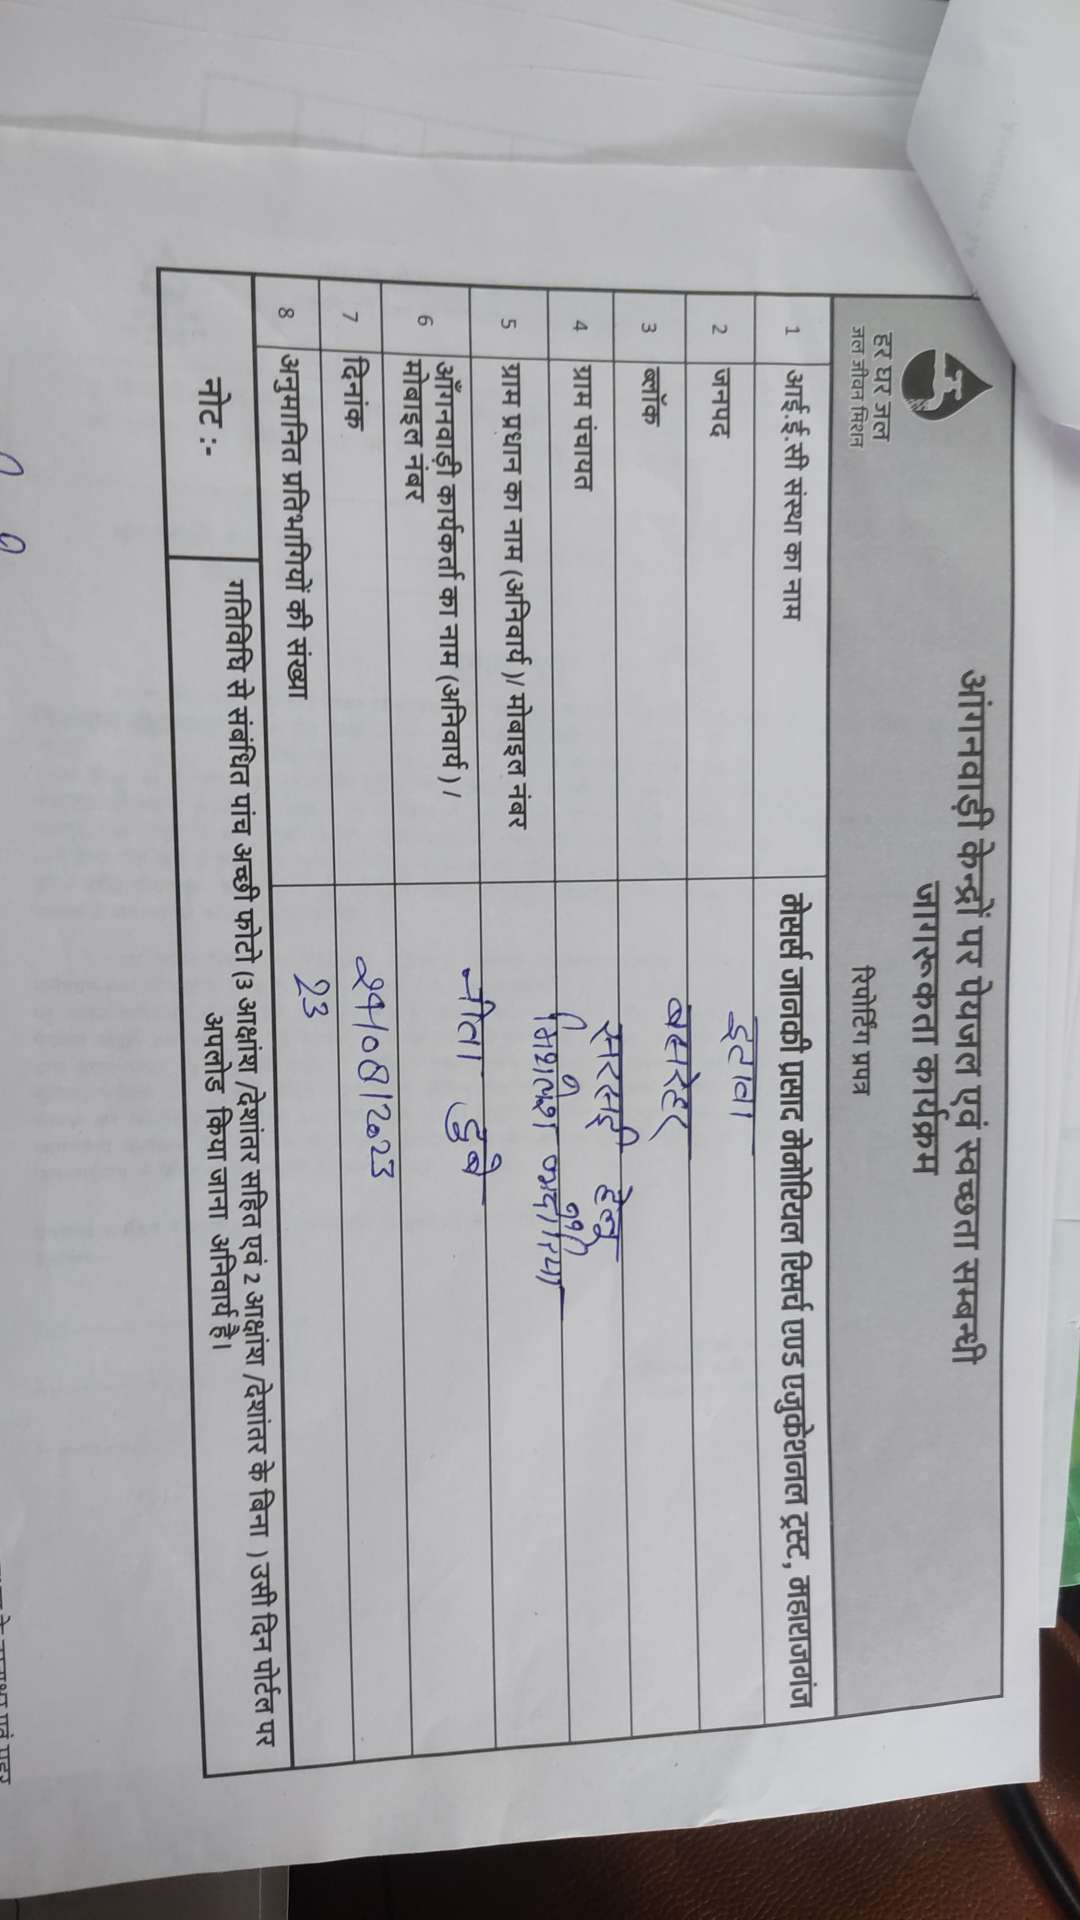 हर घर जल
जल जीवन मिशन
आंगनवाड़ी केन्द्रों पर पेयजल एवं स्वच्छता सम्बन्धी
जागरूकता कार्यक्रम
रिपोर्टिंग प्रपत्र
1 आई.ई.सी संस्था का नाम मेसर्स जानकी प्रसाद मेमोरियल रिसर्च एण्ड एजुकेशनल ट्रस्ट, महाराजगंज
2 जनपद इटावा
3 ब्लॉक बसरेहर
4 ग्राम पंचायत
5 ग्राम प्रधान का नाम (अनिवार्य )/ मोबाइल नंबर
6 आँगनवाड़ी कार्यकर्ता का नाम (अनिवार्य ) /
मोबाइल नंबर
नीता दुबे
7 दिनांक 29/08/2023
8 अनुमानित प्रतिभागियों की संख्या 23
नोट :- गतिविधि से संबंधित पांच अच्छी फोटो (3 आक्षांश /देशांतर सहित एवं 2 आक्षांश /देशांतर के बिना ) उसी दिन पोर्टल पर
अपलोड किया जाना अनिवार्य है।